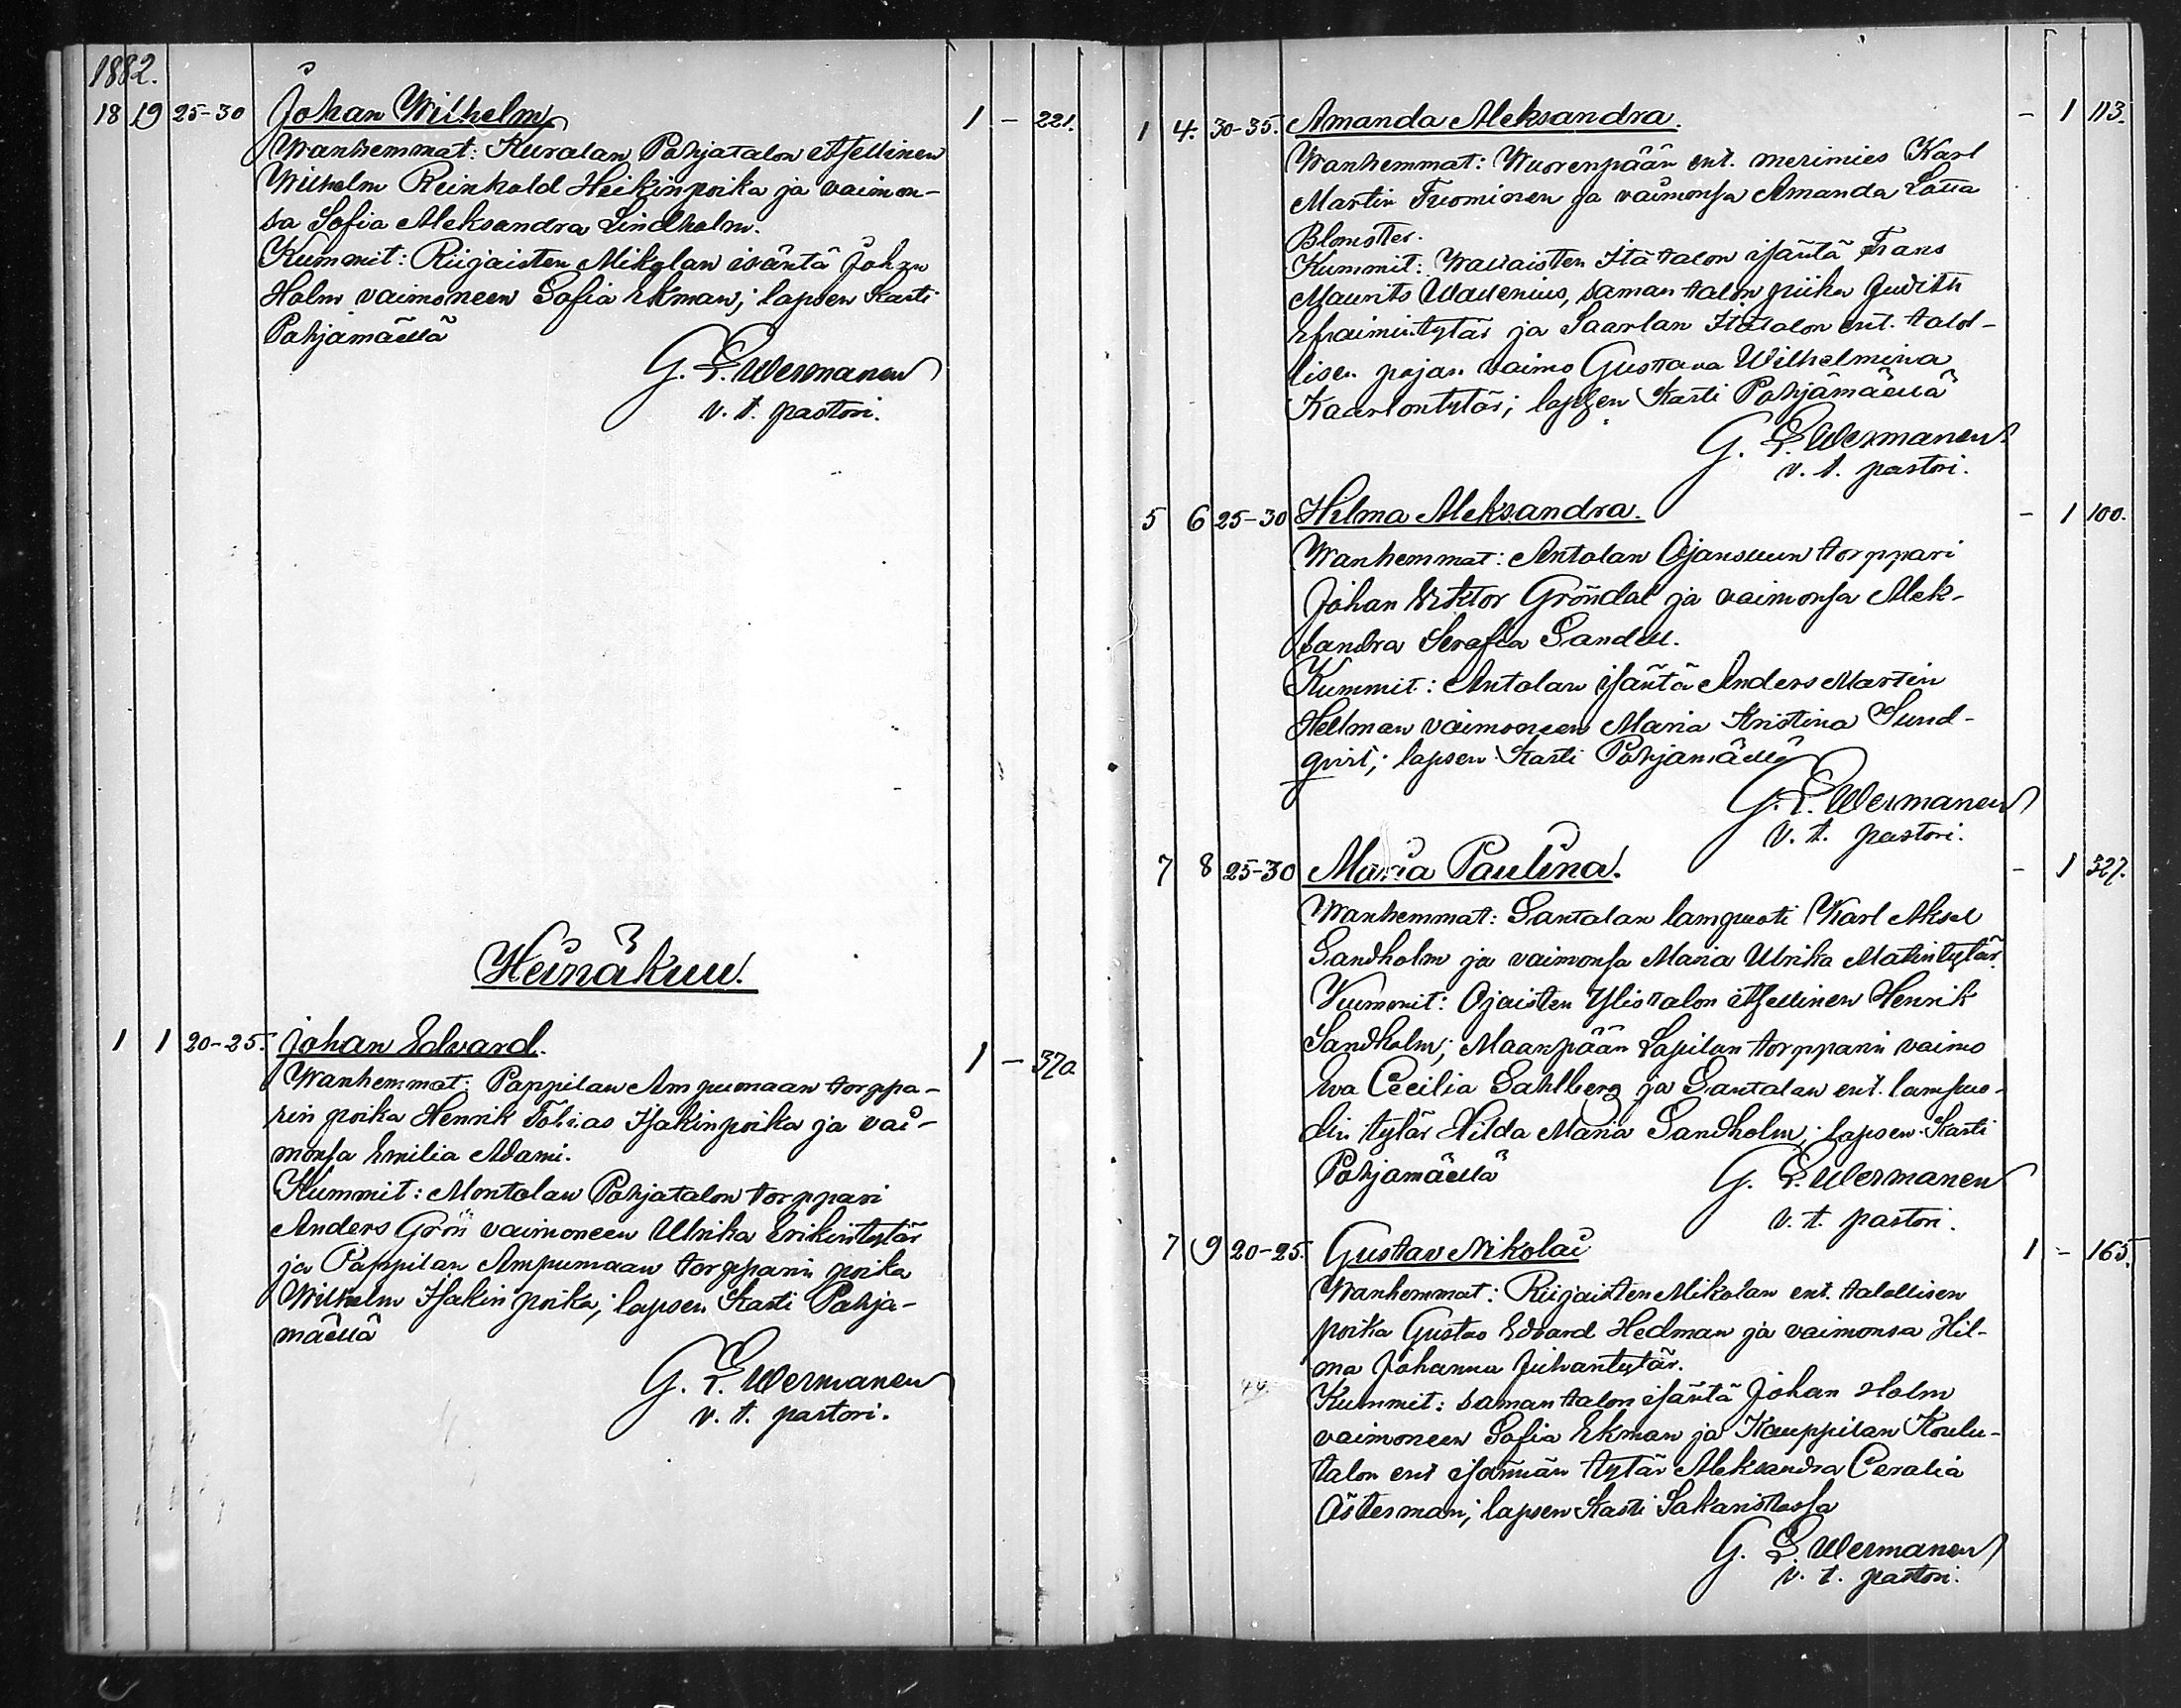 1882.
18 19 25-30 Johan Wilhelm 1 - 221.
Wanhemmat: Kuralan Pohjatalon itsellinen
Wilhelm Reinhold Heikinpoika ja vaimon-
sa Sofia Aleksandra Lindholm.
Kummit: Riijaisten Mikolan isäntä Johan
Holm vaimoneen Sofia Ekman; lapsen kasti
Pohjamäellä
G. E. Wermanen
v. t. pastori.
Heinäkuu.
1 1 20-25. Johan Edvard. 1 - 370.
Wanhemmat: Pappilan Ampumaan torppa-
rin poika Henrik Tobias Isakinpoika ja vai-
monsa Emilia Adami.
Kummit: Montolan Pohjatalon torppari
Anders Grön vaimoneen Ulrika Erikintytär
ja Pappilan Ampumaan torpparin poika
Wilhelm Isakin poika; lapsen kasti Pohja-
mäellä
G. E. Wermanen
v. t. pastori.
1 4. 30-35. Amanda Aleksandra. - 1 113.
Wanhemmat: Wuorenpään ent. merimies Karl
Martin Tuominen ja vaimonsa Amanda Lotta
Blomster.
Kummit: Itätalon isäntä Frans
Maurits Wallenius, saman talon piika Judith
Efraimintytär ja Saarlan Itätalon ent. talol-
lisen pojan vaimo Gustava Wilhelmina
Kaarlontytär; lapsen kasti Pohjamäellä
G. E. Wermanen
v. t. pastori.
5 6 25-30 Hilma Aleksandra. - 1 100.
Wanhemmat: Antolan Ojansuun torppari
Johan Viktor Gröndal ja vaimonsa Alek-
sandra Serafia Sandell.
Kummit: Antolan isäntä Anders Martin
Hellman vaimoneen Maria Kristina Sund-
qvist; lapsen kasti Pohjamäellä
G. E. Wermanen
v. t. pastori.
7 8 25-30 Maria Paulina. - 1 327.
Wanhemmat: Santalan lampuoti Karl Aksel
Sandholm ja vaimonsa Maria Ulrika Matintytär.
Kummit: Ojaisten Ylistalon itsellinen Henrik
Sandholm; Maanpään Lapilan torpparin vaimo
Eva Cecilia Sahlberg ja Santalan ent. lampuo-
din tytär Hilda Maria Sandholm; lapsen kasti
Pohjamäellä
G. E. Wermanen
v. t. pastori.
7 9 20-25. Gustav Nikolai 1 - 165.
Wanhemmat: Riijaisten Mikolan ent. talollisen
poika Gustav Edvard Hedman ja vaimonsa Hil-
ma Johanna Juhantytär.
Kummit: saman talon isäntä Johan Holm
vaimoneen Sofia Ekman ja Kauppilan Koulu-
talon ent isännän tytär Aleksandra Ceralia
Österman; lapsen kasti Sakaristossa
G. E. Wermanen
v. t. pastori.